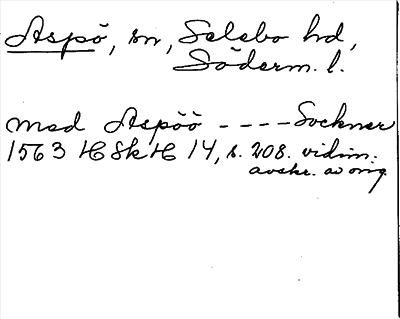 Aspö, sn, Selebo hd,
Söderm. l.
med Aspöö ---- Sockner
1563 HSkH 14, s. 208. vidim.
avskr. av orig.